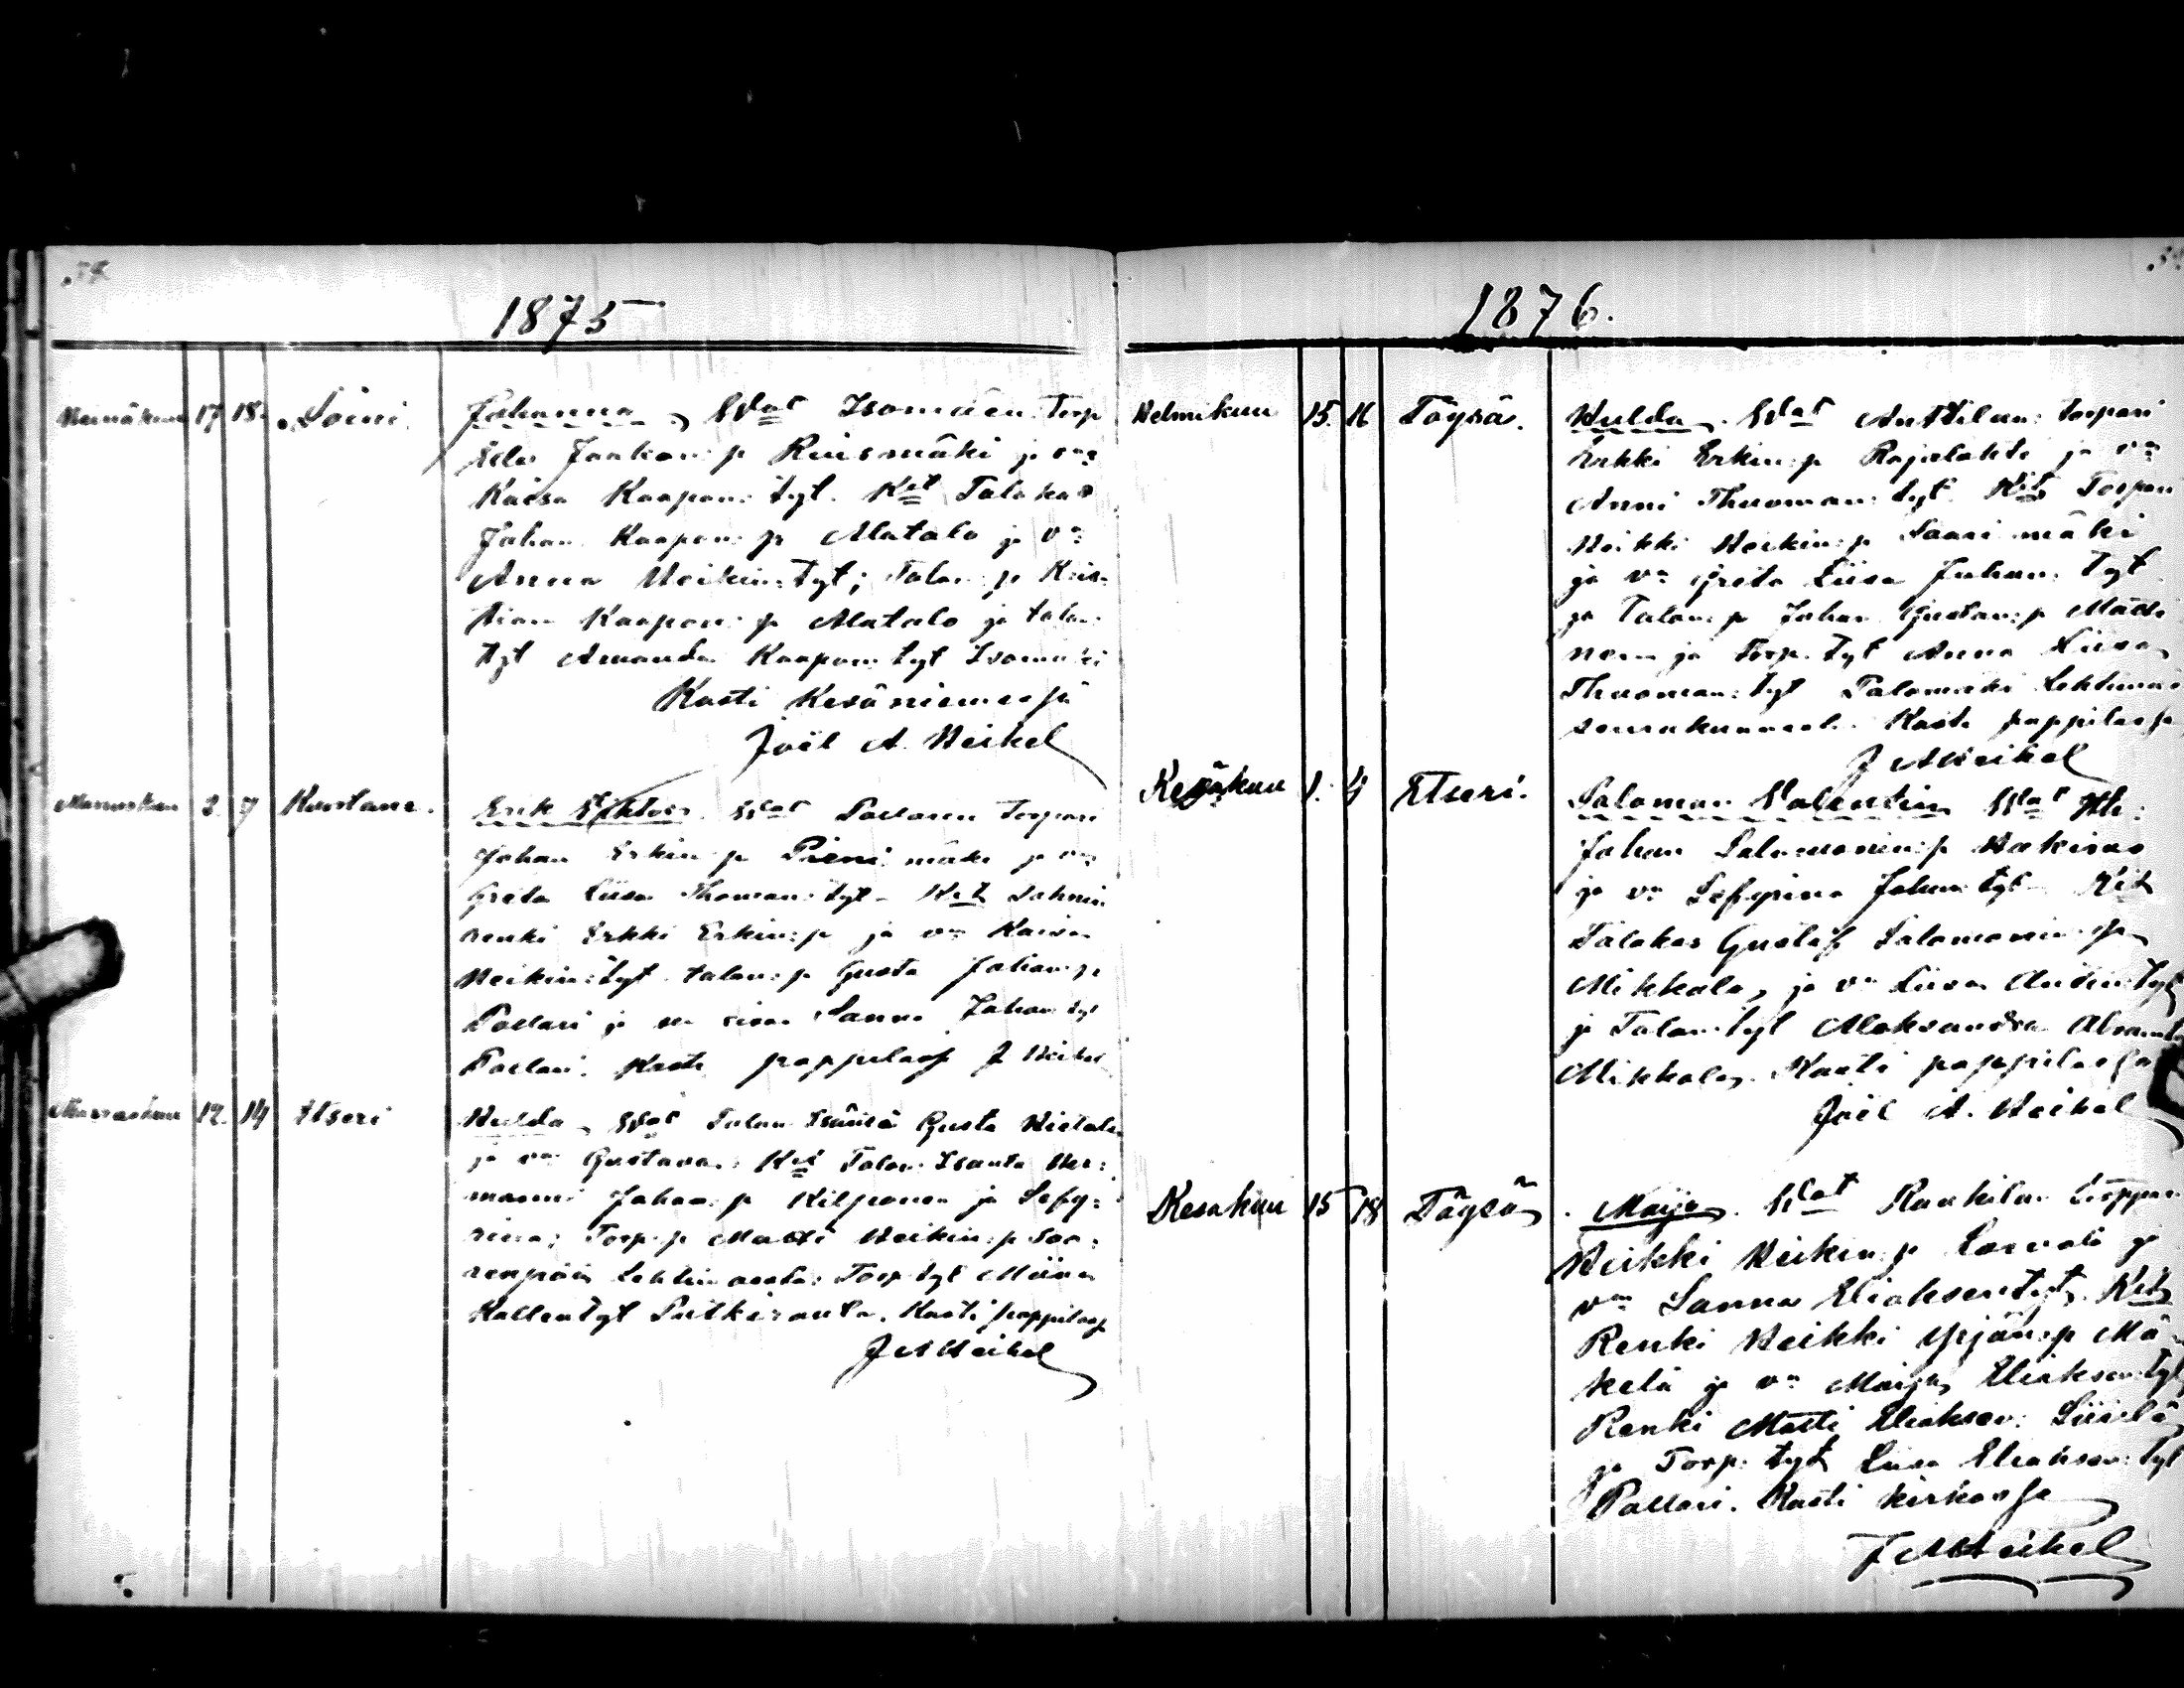 1875
Heinäkuu 17 18 Soini Johanna, Wat Isomäen Torp
Elis Jaakon: p Ruismäki ja vmo
Kaisa Kaapon: tyt. Kit Talokas
Johan Kaapon: p Alatalo ja vo
Anna Heikin: tyt; Talon: p Kris-
tian Kaapon: p Alatalo ja talon:
tyt Amanda Kaapon: tyt Isomäki
Kasti Kesäniemessä
Joel A. Heikel
Marraskuu 3. 7 Kuortane. Erik Wihtori Wat Pollarin torpari
Johan Erkin: p Pienimäki ja vmo
Greta Liisa Thoman: tyt. Kit
renki Erkki Erkin: p ja vmo Kaisa
Heikin: tyt. talon: p Gusta Johan: p
Pollari ja Sanna Johan: tyt
Pollari. Kaste pappilass J Heikel
Marraskuu 12. 14 Etseri Hulda, Wat Talon Isäntä Gusta Hietala
ja vmo Gustava: Kit Talon Isäntä Her-
manni Johan: p Kilponen ja Sefy-
rina; Torp: p Matti Heikin: p Saa-
renpään Torp. tyt Miina
Kallentyt Putkiranta. Kasti pappilass
J A Heikel
1876.
Helmikuu 15. 16 Töysä. Hulda. Wat Anttilan: torpari
Erkki Erkin: p Rajalahti ja vmo
Anni Thuoman: tyt. Kit Torpari
Heikki Heikin: p Saarimäki
ja vo Greta Liisa Juhan: tyt
ja Talon: p Johan Gustan: p Mätti
nen ja Torp. tyt Anna Liisa
Thuoman: tyt Salomäki Lehtimäi
seurakunnast. Kaste pappilassa
J A Heikel
Kesäkuu 1. 4 Etseri. Salomon Valentin Wat
Johan Salomonin: p Hakivuo
ja vo Sefyrina Johan: tyt. Kit
Talokas Gustaf Salomonin: p
Mikkola, ja vo Liisa Antin: tyt
ja Talon: tyt Aleksandra Abram: t
Mikkola. Kasti pappilassa
Joel A. Heikel
Kesakuu 15 18 Töysä Maija. Wat Raukilan torppari
Heikki Heikin: p Larvala ja
vmo Sanna Eliaksentyt. Kit
Renki Heikki Yrjön: p Mä-
kelä ja vo Maija Eliaksen: tyt
Renki Matti Eliaksen: Liisilä
ja Torp: tyt Liisa Eliaksen: tyt
Pollari. Kasti kirkossa
J A Heikel